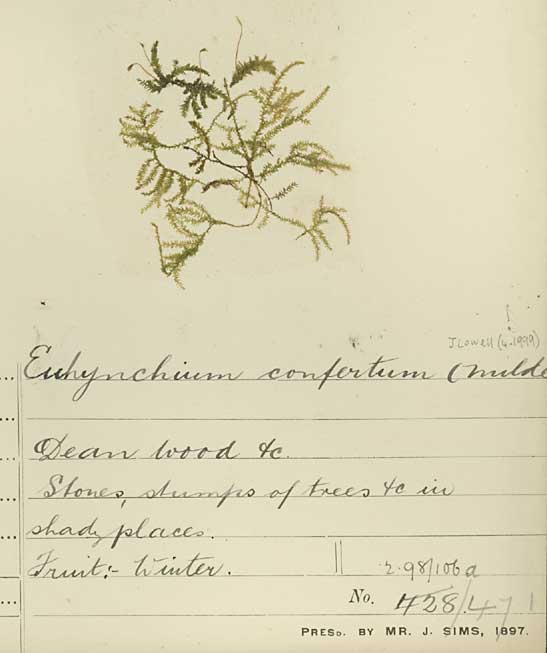 J Lowell (4.1999)
Eurhynchium confertum (Milde
Dean Wood &c.
Stones, stumps of trees &c in
shady places.
Fruit:- Winter.
2.98/106a
No. 428/4/71
PRESD. BY MR. J. SIMS, 1897.